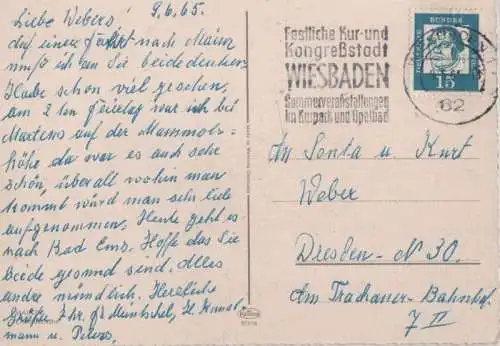 Liebe Webers! 9.6.65.
Auf einer Fahrt nach Mainz
muß ich an Sie beide denken.
Habe schon viel gesehen,
am 2 ten Feiertag war ich bei
Martens auf der Mammols-
höhe da war es auch sehr
schön, überall wohin man
kommt wird man sehr lieb
aufgenommen, Heute geht es
nach Bad Ems. Hoffe das Sie
beide gesund sind. Alles
andre mündlich. Herzliche
Grüße Ihr
mann u. Peters.
Festliche Kur- und
Kongreßstadt
WIESBADEN
Sommerveranstaltungen
im Kurpark und Opelbad
DEUTSCHE BUNDESPOST
15
62
An Sonta u. Kurt
Weber
Dresden - N 30.
Am Trachauer-Bahnhof
7 II